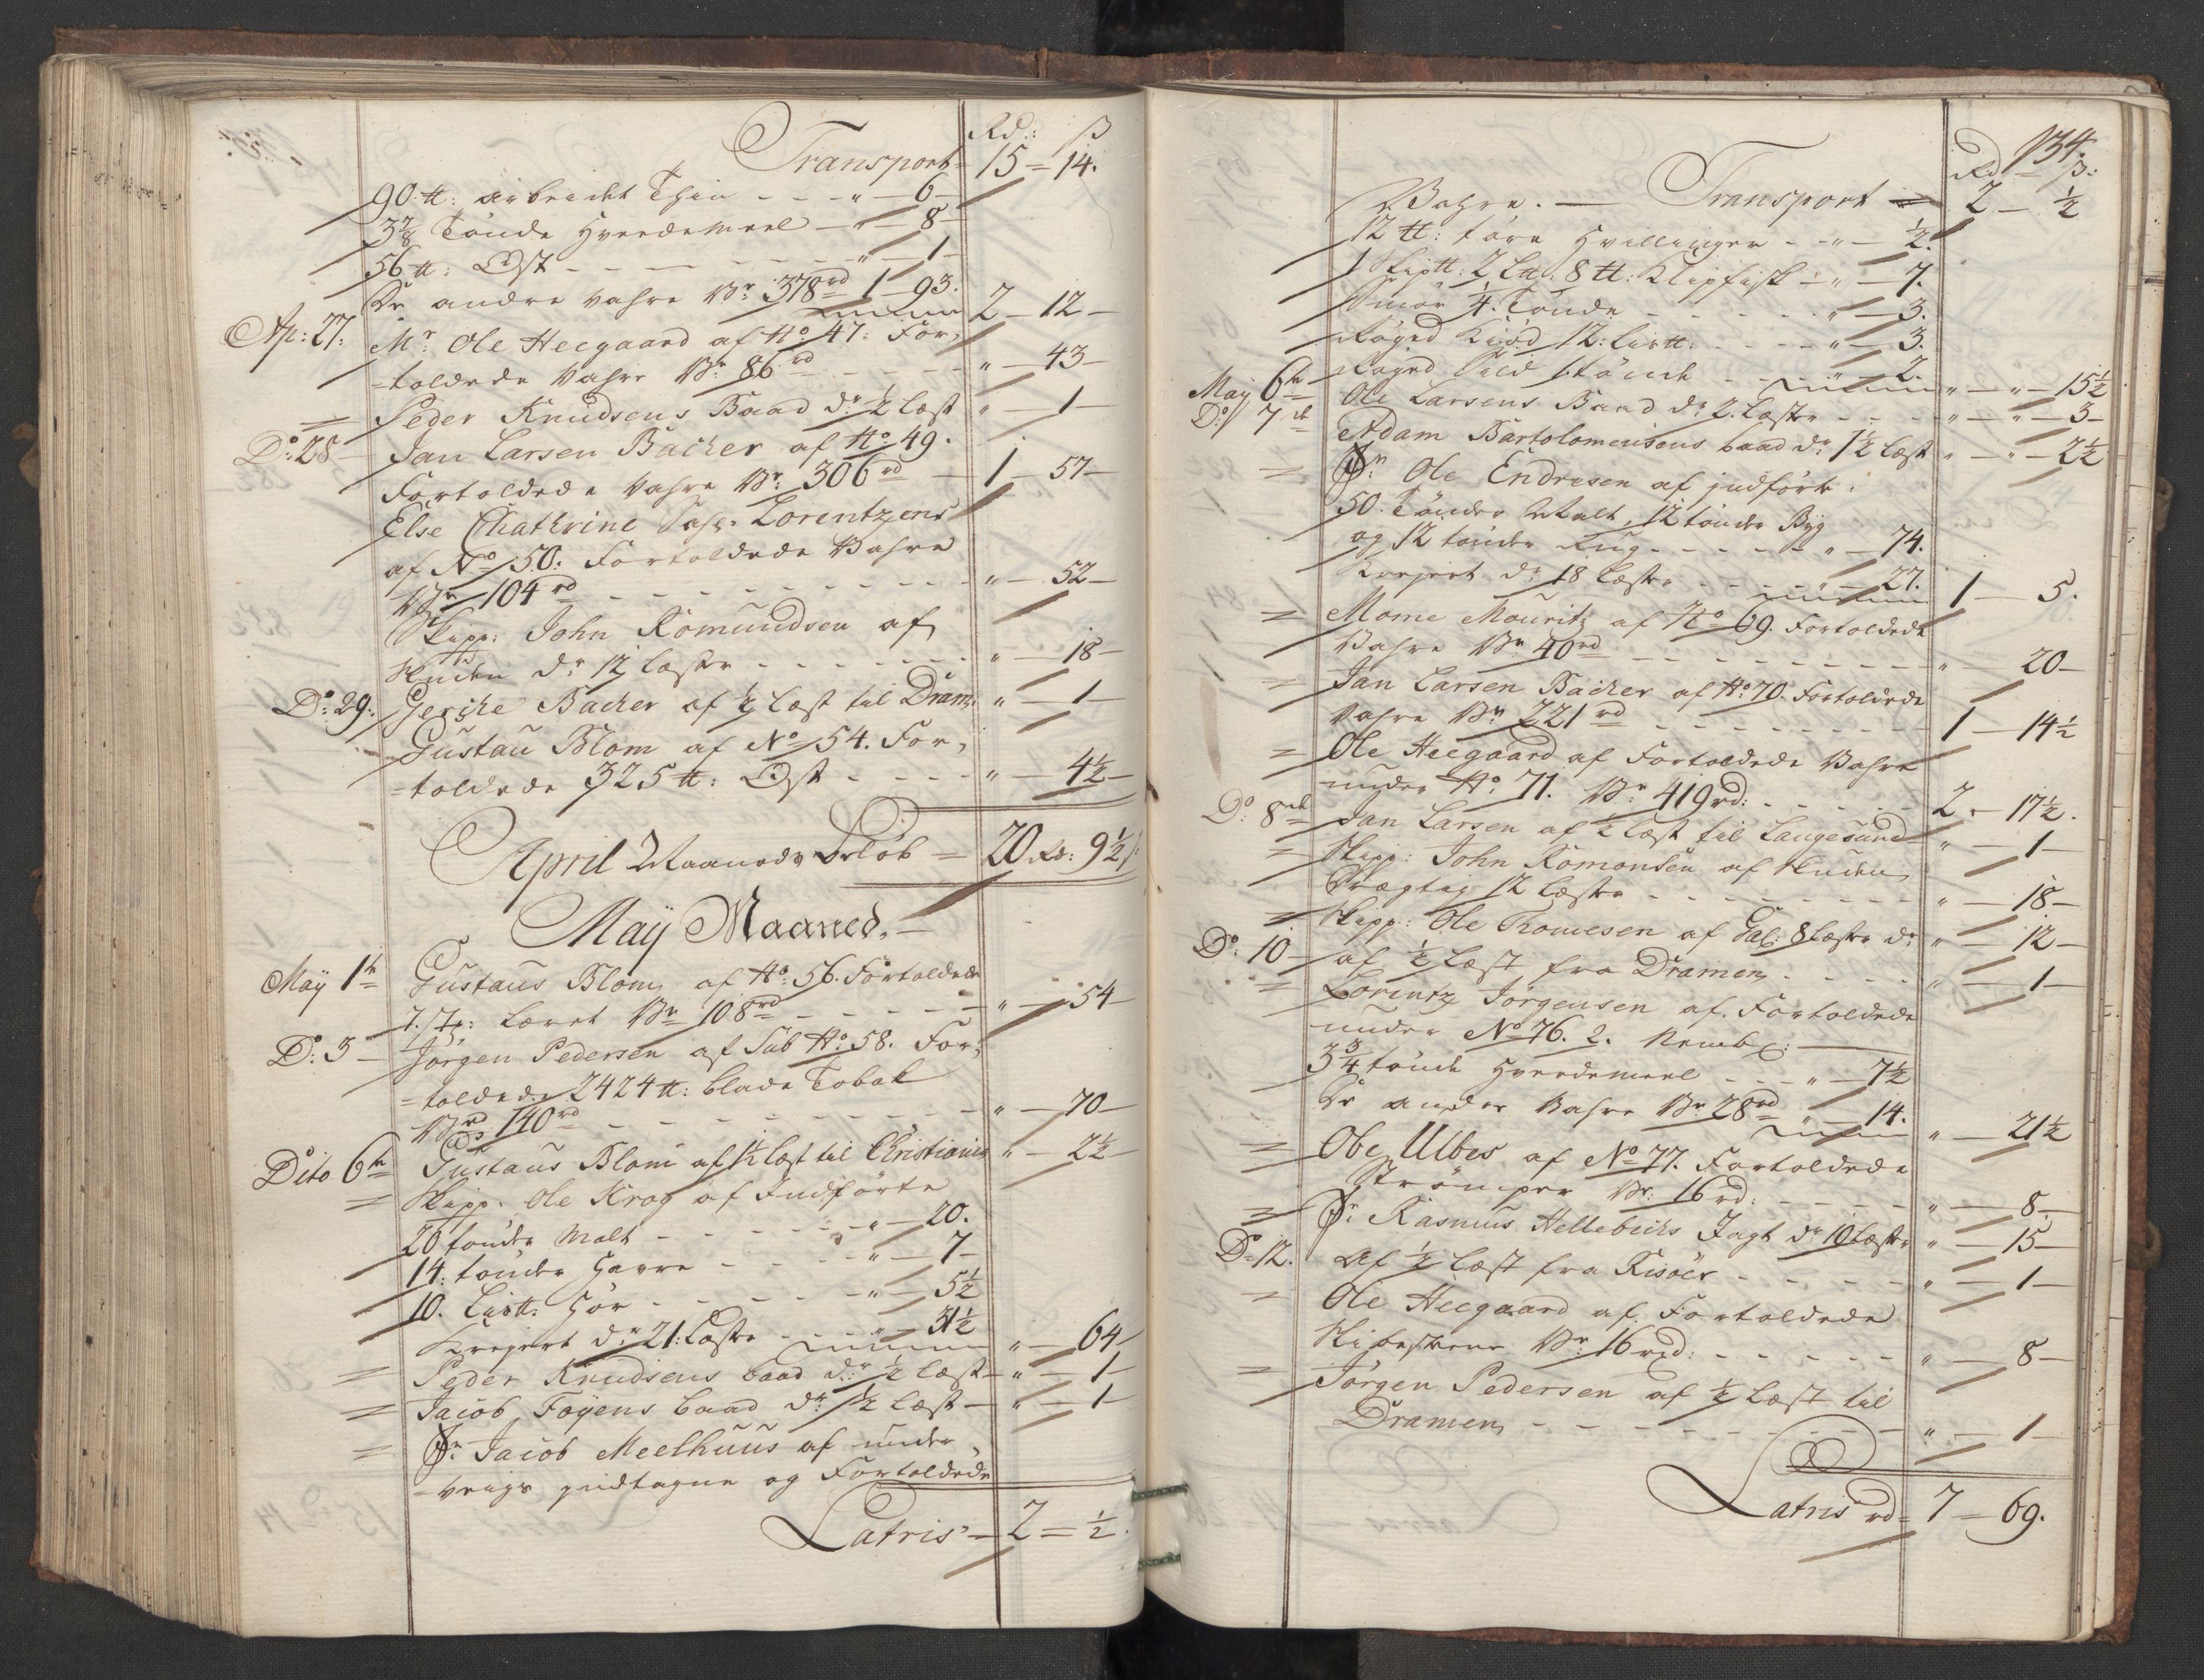 Rd: ß
Transport = 15 = 14.
90 ℔: arbeidet Thin - - - " — 6 —
3 7/8 Tønde Hvedemeel — " — 8 —
56 ℔: Ost - - — - - - " — 1 —
De andre Vahre Vr: 378 rd 1 — 93.
2 — 12 —
Ap: 27: Mr Ole Heegaard af No 47: For,
=toldede Vahre Vr: 86 rd - - - - " — 43 —
= Peder Knudsens Baad dr: 1/2 Læst " — 1 —
Do: 28 — Jan Larsen Backer af No 49.
Fortoldede Vahre Vr: 306 rd — 1 — 57 —
Else Chathrine Sahl: Lorentzens
af No 50: Fortoldede Vahre
Vr 104 rd - - - - - - - - " — 52 —
Skipp: John Romundsen af
Huden dr 12 Læster - - - - - - " — 18 —
Do: 29: Gerche Backer af 1/2 Læst til Dram: " — 1 —
Gustau Blom af No 54. For,
=toldede 325 ℔: Ost - - - - " — 4 1/2 —
April Maaneds Beløb = 20 Rd: 9 1/2 ß
May Maaned. —
May 1te Gustaus Blom af No: 56. Fortoldede
7. Stz: Læret Vr 108 rd - - - - - " — 54 —
Do: 3 — Jørgen Pedersen af Sub No: 58. For,
=toldede 2424 ℔: blade Tobak
Vr 140 rd - - - - - - - - " — 70 —
Dito 6te Gustaus Blom af 1 1/2 Læst til Christiania " — 2 1/2 —
= Skipp: Ole Krog af Indførte
20 tønder Malt - - - - - " — 20.
14: tønder Havre - - - - " — 7 —
10. Lis℔: Hør - - - - - " — 5 1/2
Kreyert dr 21: Læster - - - " — 31 1/2
" — 64 —
= Peder Knudsens baad dr: 1/2 Læst — " — 1 —
= Jacob Føyens baad dr 1/2 Læst — " — 1 —
= Sr: Jacob Meelhuus af under
=veigs indtagne og Fortoldede
Latris = 2 = 1/2.
134.
Rd — ß:
Vahre. — Transport = 2 — 1/2
12 ℔: tøre Hvillinger - - " — 1/2.
1 Skip℔: 2 L℔: 8 ℔: Klipfisk — " — 7.
Smør 1/4. Tønde - - - - - " — 3.
Røged Kiød 12: Lis℔: - - - - " — 3.
Røged Sild 1 tønde - - - " — 2.
" — " — 15 1/2
May 6te Ole Larsens Baad dr 2. Læster - - - " — " — 3 —
Do: 7de Adam Bartolomeusens baad dr: 1 1/2 Læst " — " — 2 1/2
= Sr Ole Endresen af indførte:
50. Tønder Malt, 12 tønder Byg
og 12 tønder Rug - - - - - " — 74.
Kreyert dr 18 Læster - - - - " — 27.
1 — 5.
= Mome Mouritz af No 69. Fortoldede
Vahre Vr 40 rd - - - - - - - - " — 20 —
= Jan Larsen Backer af No: 70. Fortoldede
Vahre Vr 221 rd - - - - - - - - 1 — 14 1/2
= Ole Heegaard af Fortoldede Vahre
under No: 71. Vr 419 rd: - - - - - 2 - 17 1/2.
Do: 8de Jan Larsen af 1/2 Læst til Langesund " — 1 —
= Skipp: John Romonsen af Huden
Drægtig 12 Læster - - - - - - - " — 18 —
= Skipp: Ole Thomesen af Gal: 8 Læster dr " — 12 —
Do: 10 — af 1/2 Læst fra Dramen, - - - - " — 1 —
= Lorentz Jørgensen af Fortoldede
under No 76. 2. Remb: —
3 3/4 tønde Hvedemeel - - - " — 7 1/2
De andre Vahre Vr 28 rd " — 14.
" — 21 1/2
= Obe Ulbes af No 77. Fortoldede
Strømper Vr: 16 rd: - - - - - " — 8 —
= Sr: Rasmus Hellebichs Jagt dr 10 Læster " — 15 —
Do 12. Af 1/2 Læst fra Risøer - - - - - " — 1 —
= Ole Heegaard af Fortoldede
Vr: 16 rd: - - - - - " — 8 —
= Jørgen Pedersen af 1/2 Læst til
Dramen, - - - - - - - - - " — 1 —
Latris rd = 7 — 69.